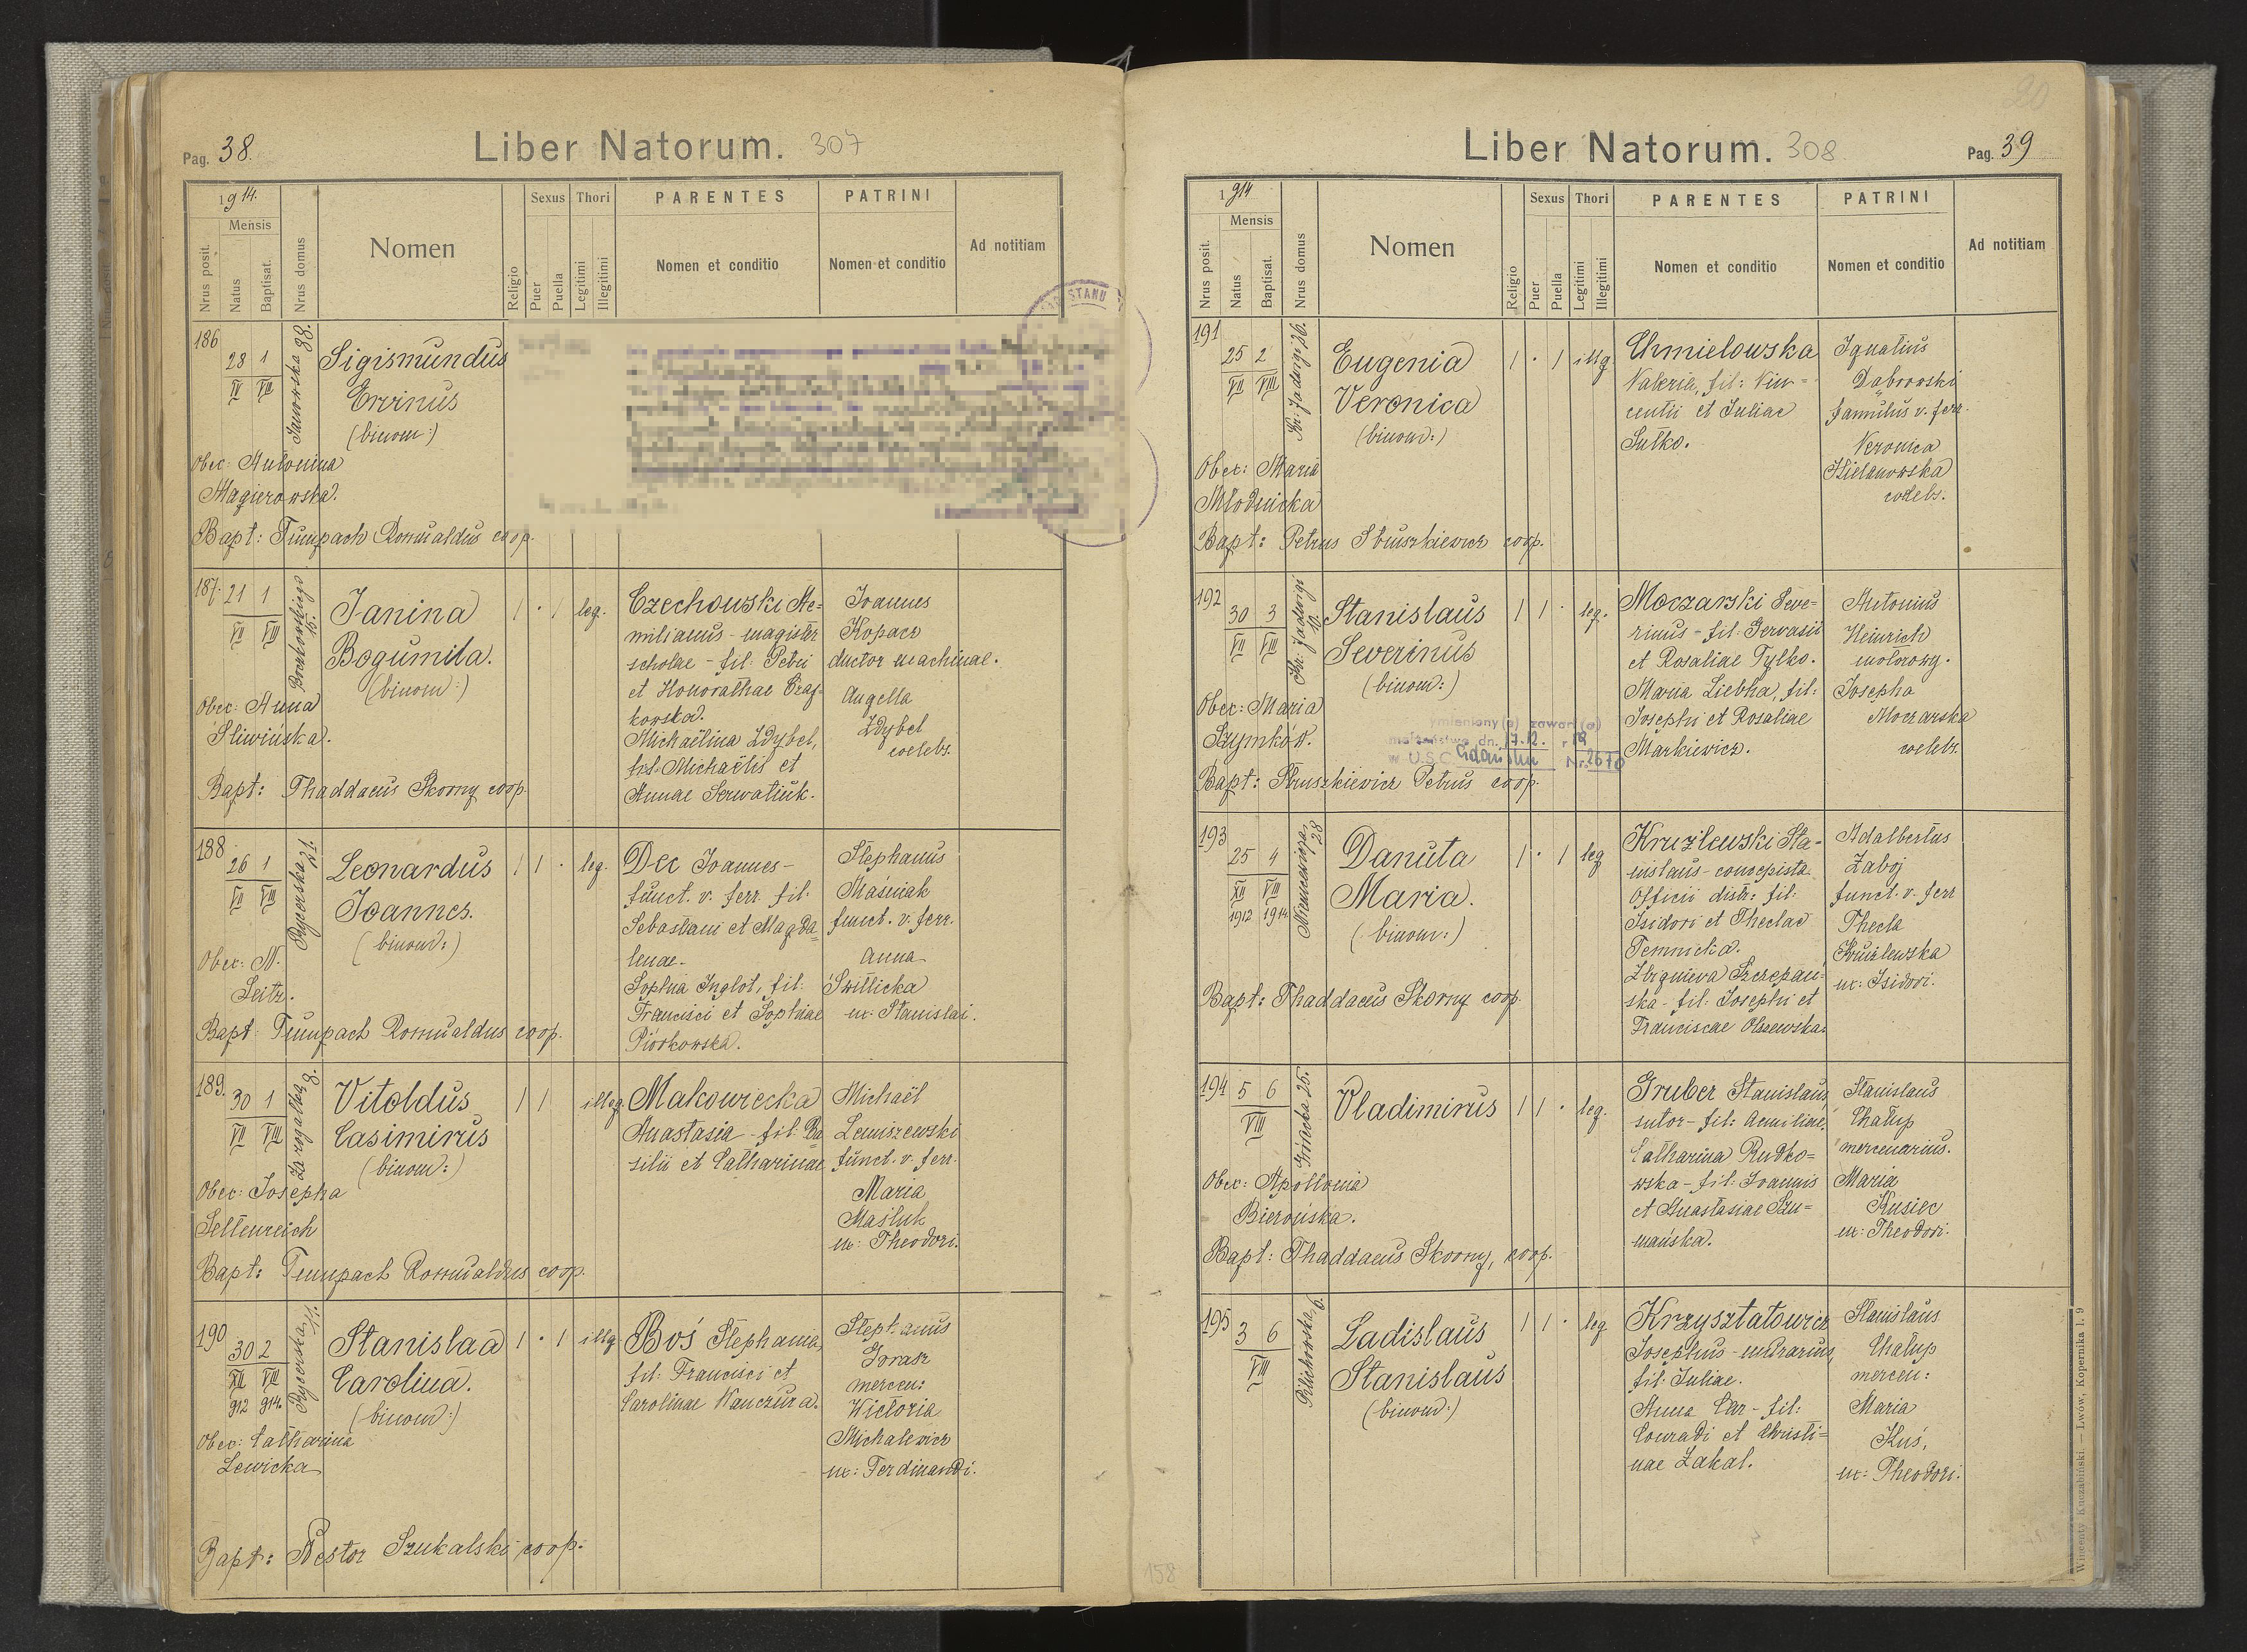 Pag. 38.
Liber Natorum. 307
1914.
Mensis
Nrus posit.
Natus
Baptisat.
Nrus domus
Nomen
Religio
Sexus
Puer
Puella
Thori
Legitimi
Illegitimi
PARENTES
Nomen et conditio
PATRINI
Nomen et conditio
Ad notitiam
186
28 1
VIII
Janowska 88.
Sigismundus
Ervinus
(binom:)
Obec: Antonina
Magierowska.
Bapt: Romualdus coop.
187. 21 1
VII VIII
15.
Janina
Bogumila.
(binom:)
1 · 1 leg.
Czechowski Ae=
milianus - magister
scholae - fil: Petri
et Honorathae
kowska.
Michaëlina Zdybel,
fil: Michaëlis et
Annae Serwatiuk.
Joannes
Kopacz
ductor machinae.
Angella
Zdybel
coelebs.
Obec: Anna
Śliwińska.
Bapt: Thaddaeus Skorny coop.
188
26 1
VII VIII
Rycerska 21.
Leonardus
Joannes.
(binom:)
1 1 · leg.
Dec Joannes -
funct. v. ferr. fil:
Sebastiani et Magda=
lenae.
Sophia Inglot, fil:
Francisci et Sophiae
Piórkowska.
Stephanus
Maśniak
funct. v. ferr.
Anna
Świtlicka
ux: Stanislai.
Obec: N.
Seitz.
Bapt: Romualdus coop.
189.
30 1
VII VIII
8.
Vitoldus
Casimirus
(binom:)
1 1 illeg.
Makowiecka
Anastasia - fil: Ba
silii et Catharinae
Michaël
Lewiszewski
funct. v. ferr.
Maria
Maśluk
ux: Theodori.
Obec: Josepha
Seltenreich
Bapt: Romualdus coop.
190
30 2
XII VIII
912 914.
Rycerska 11.
Stanislaa
Carolina.
(binom:)
1 · 1 illg.
Boś Stephania,
fil: Francisci et
Carolinae Wanczura.
Stephanus
Gorasz
mercen:
Wictoria
Michalewicz
ux: Ferdinandi.
Obec: Catharina
Lewicka
Bapt: Nestor Szukalski coop.
20
Liber Natorum. 308
Pag. 39
1914
Mensis
Nrus posit.
Natus
Baptisat.
Nrus domus
Nomen
Religio
Sexus
Puer
Puella
Thori
Legitimi
Illegitimi
PARENTES
Nomen et conditio
PATRINI
Nomen et conditio
Ad notitiam
191
25 2
VII VIII
Kr: Jadwigi 26.
Eugenia
Veronica
(binom:)
1 · 1 illg.
Chmielowska
Valeria, fil: Vin=
centii et Juliae
Sulko.
Ignatius
Dąbrowski
famulus v. ferr.
Veronica
Kielanowska
coelebs.
Obec: Maria
Młodnicka
Bapt: Petrus Struszkiewicz coop.
192
30 3
VII VIII
Kr: Jadwigi
10.
Stanislaus
Severinus
(binom:)
1 1 · leg.
Moczarski Seve=
rinus - fil: Gervasii
et Rosaliae Tylko.
Maria Liebha, fil:
Josephi et Rosaliae
Markiewicz.
Antonius
Heinrich
motorowy.
Josepha
Moczarska
coelebs.
Obec: Maria
Szymków.
ymieniony(a) zawarł(a)
małżeństwo dn. 17.12. r 19
w U.S.C. Gdańsku Nr. 2670
Bapt: Struszkiewicz Petrus coop.
193
25 4
XII VIII
1912 1914
Niemcewicza 28
Danuta
Maria.
(binom:)
1 · 1 leg
Kruźlewski Sta=
nislaus - concepista
Officii distr: fil:
Isidori et Theclae
Temnicka.
Zbigniewa Szczepań=
ska - fil: Josephi et
Franciscae Olszewska.
Adalbertus
Zaboj
funct. v. ferr
Thecla
Kruźlewska
ux: Isidori.
Bapt: Thaddaeus Skorny coop.
194
5 6
VIII
25.
Vladimirus
1 1 · leg.
Gruber Stanislaus,
sutor - fil: Aemiliae,
Catharina Rudko=
wska - fil: Joannis
et Anastasiae Szu=
mańska.
Stanislaus
Chałup
mercenarius.
Maria
Kusiec
ux: Theodori.
Obec: Apollonia
Bierońska.
Bapt: Thaddaeus Skorny, coop.
195
3 6
VIII
Pilichowska 6.
Ladislaus
Stanislaus
(binom:)
1 1 · leg
Krzysztatowicz
Josephus - murarius,
fil: Juliae.
Anna Car - fil:
Conradi et Christi=
nae Zakal.
Stanislaus
Chałup
mercen:
Maria
Kuś,
ux: Theodori.
158
Wincenty Kuczabiński. — Lwów, Kopernika l. 9